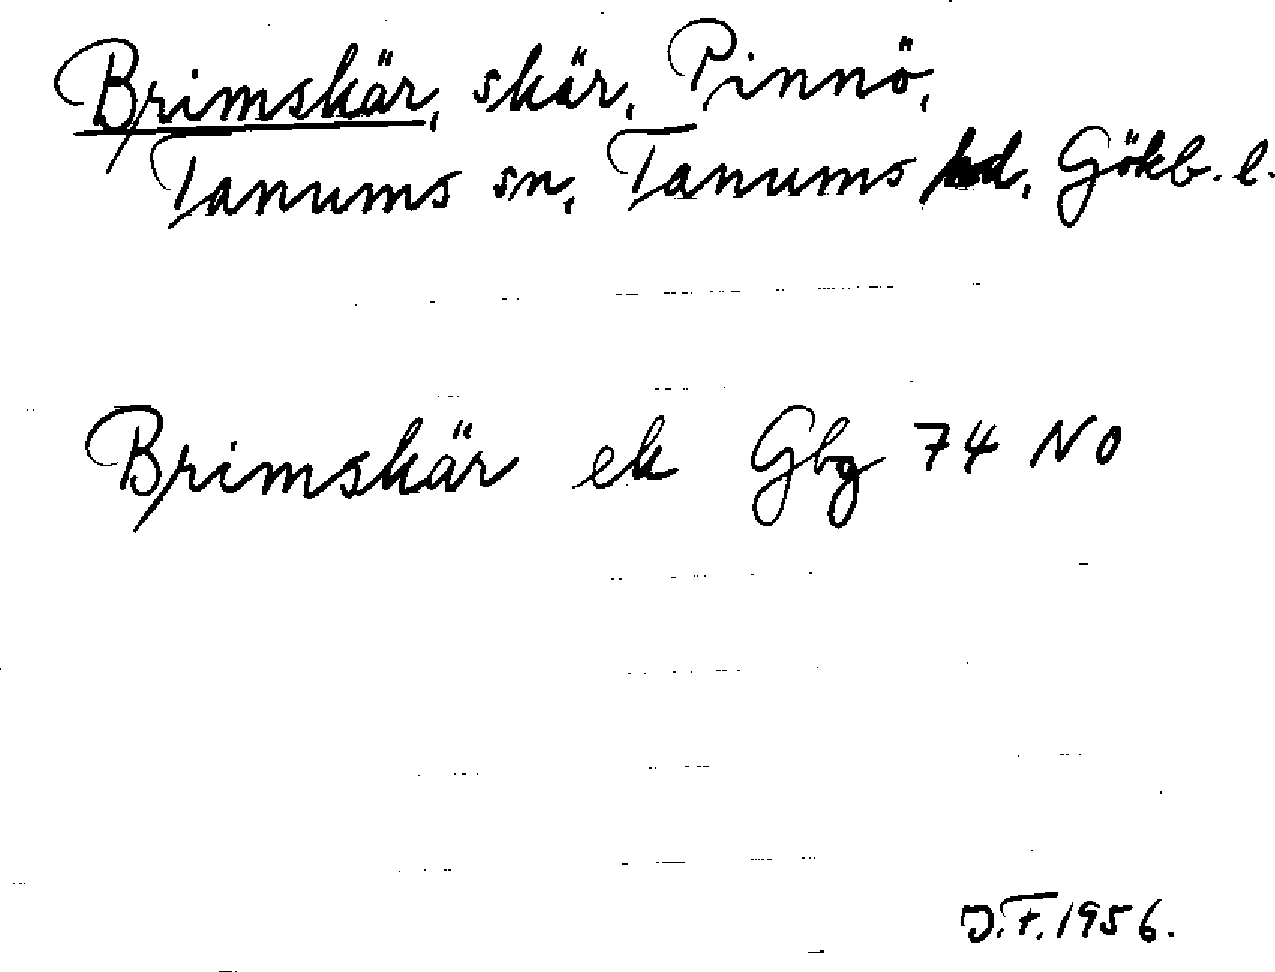 Brimskär, skär, Pinnö,
Tanums sn, Tanums hd, Gökb. l.
Brimskär ek Gbg 74 NO
J.F. 1956.